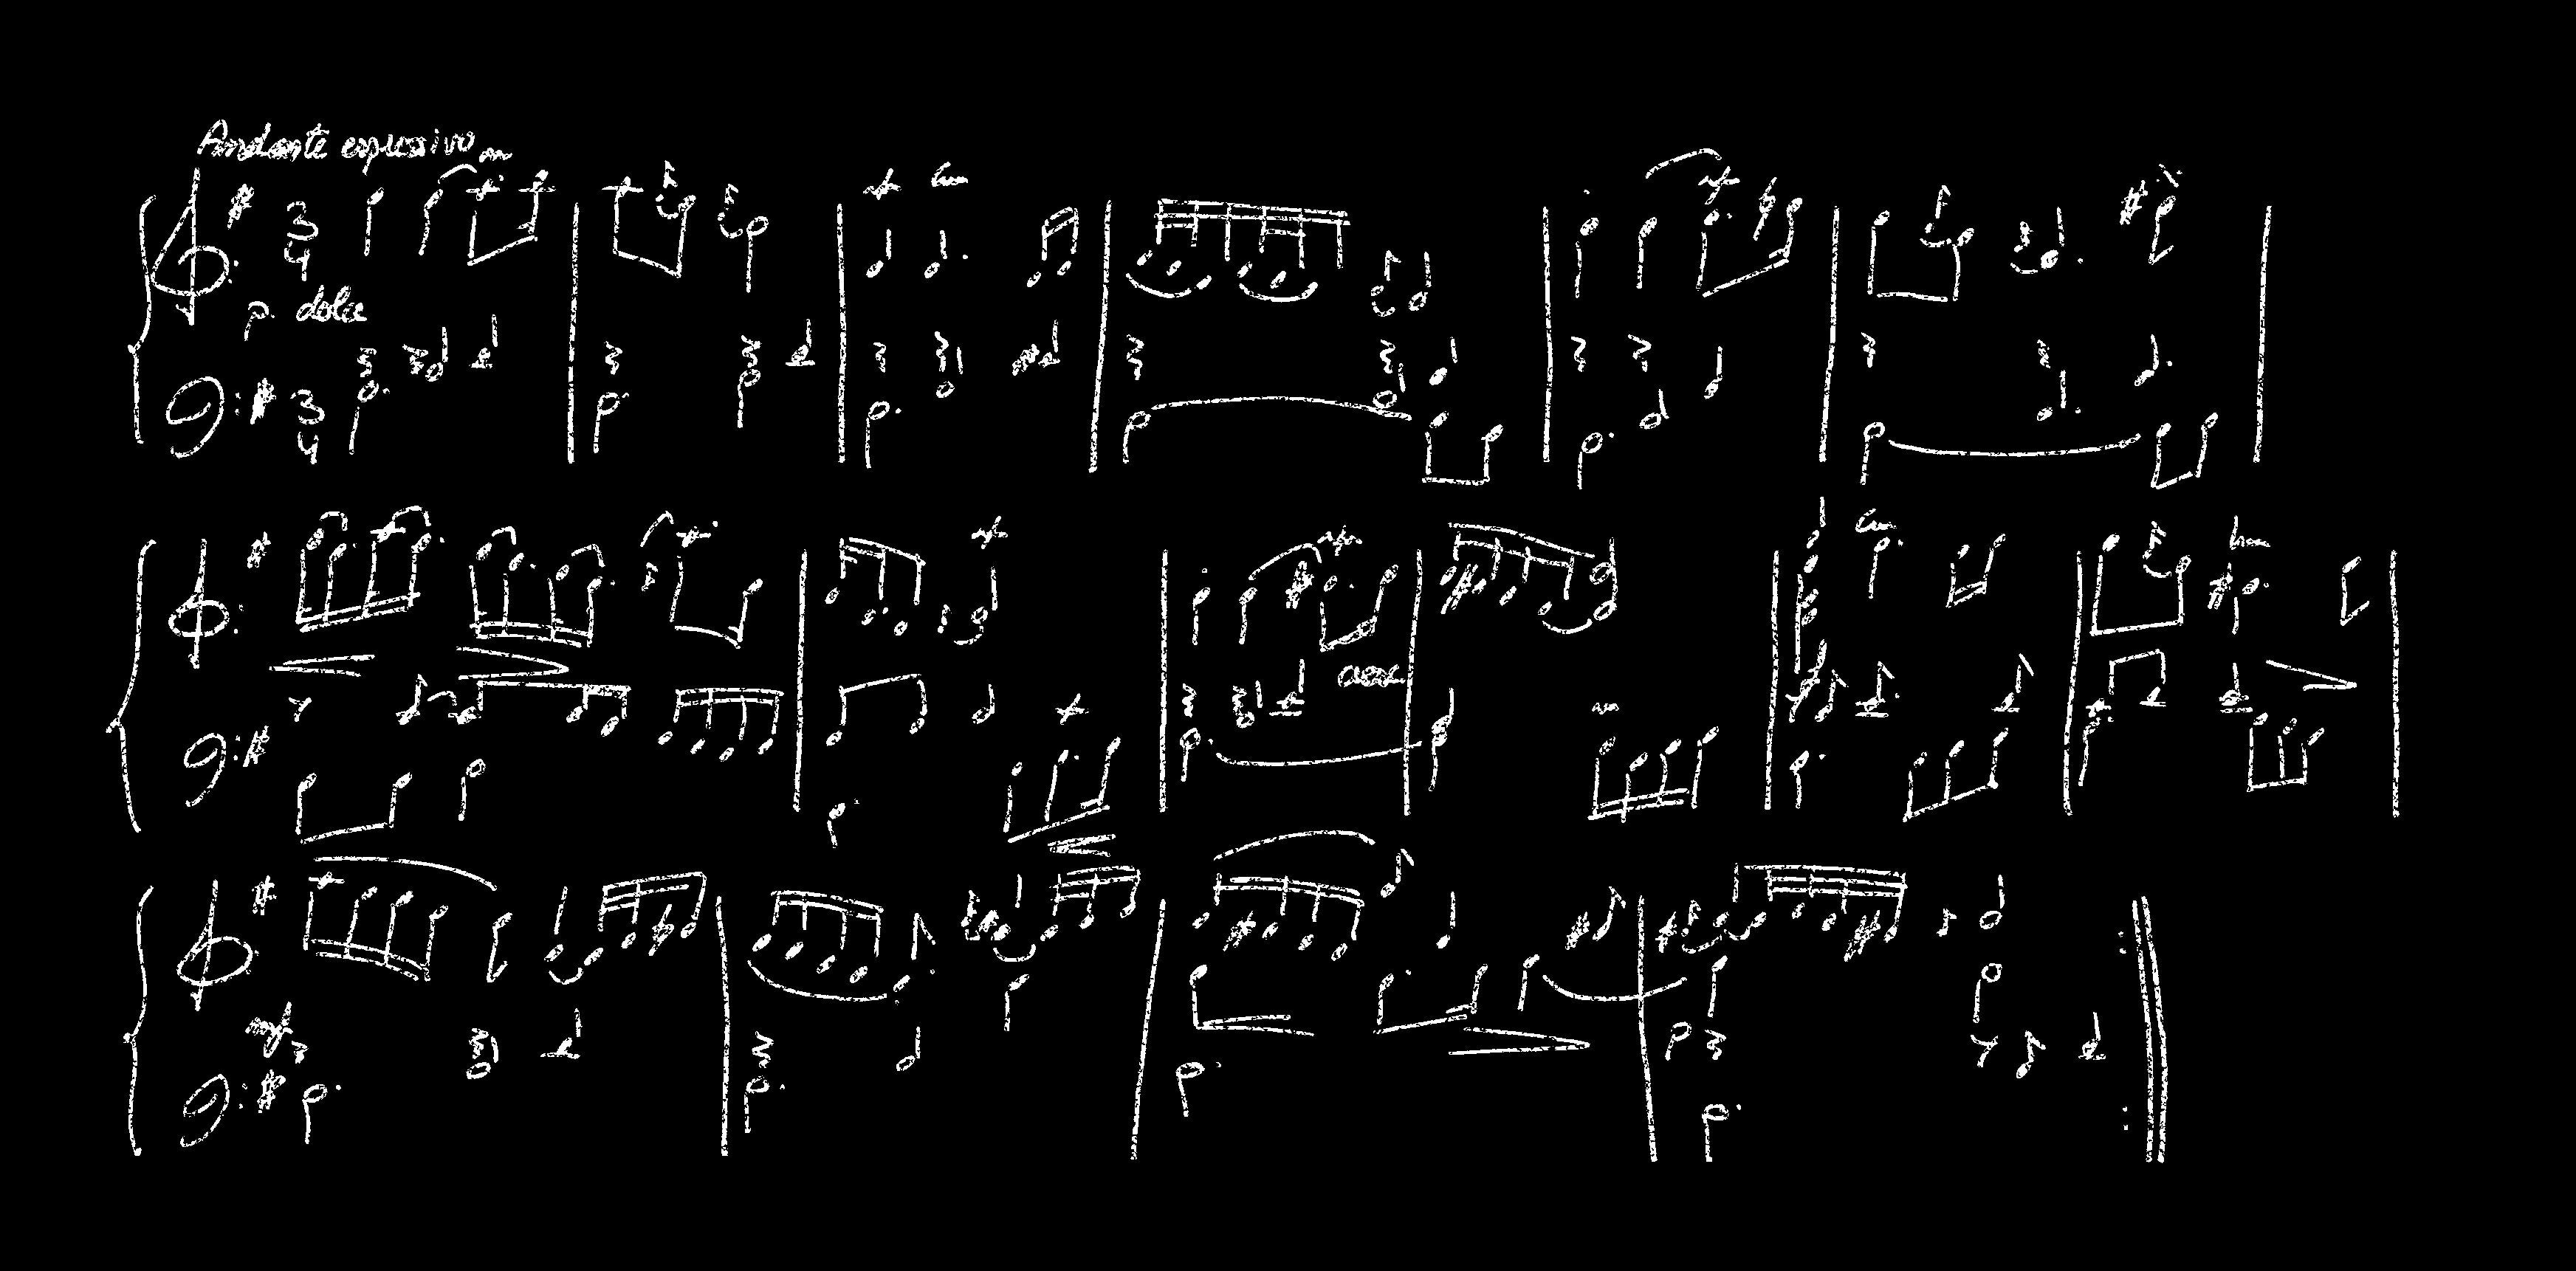 Andante espressivo
3 4
p. dolce
3 4
cresc.
mf
p